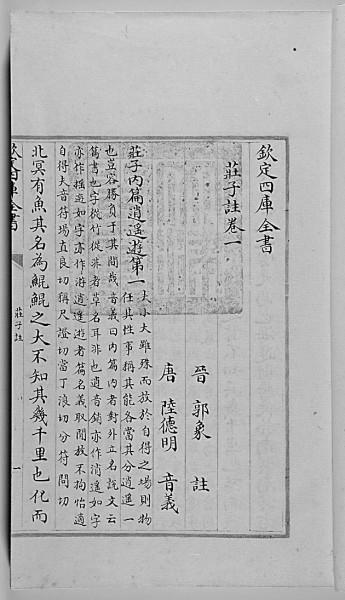 欽定四庫全書
莊子註卷一
晉 郭象 註
唐 陸德明 音義
莊子內篇逍遙遊第一
夫小大雖殊而放於自得之場則物
任其性事稱其能各當其分逍遙一
也豈容勝負于其間哉音義曰內篇內者對外立名說文云
篇書也字從竹從艸者草名耳非也逍音銷亦作消遙如字
亦作搖遊如字亦作游逍遙遊者篇名義取閒放不拘怡適
自得夫音符場直良切稱尺證切當丁浪切分符問切
北冥有魚其名為鯤鯤之大不知其幾千里也化而
欽定四庫全書
莊子註
一